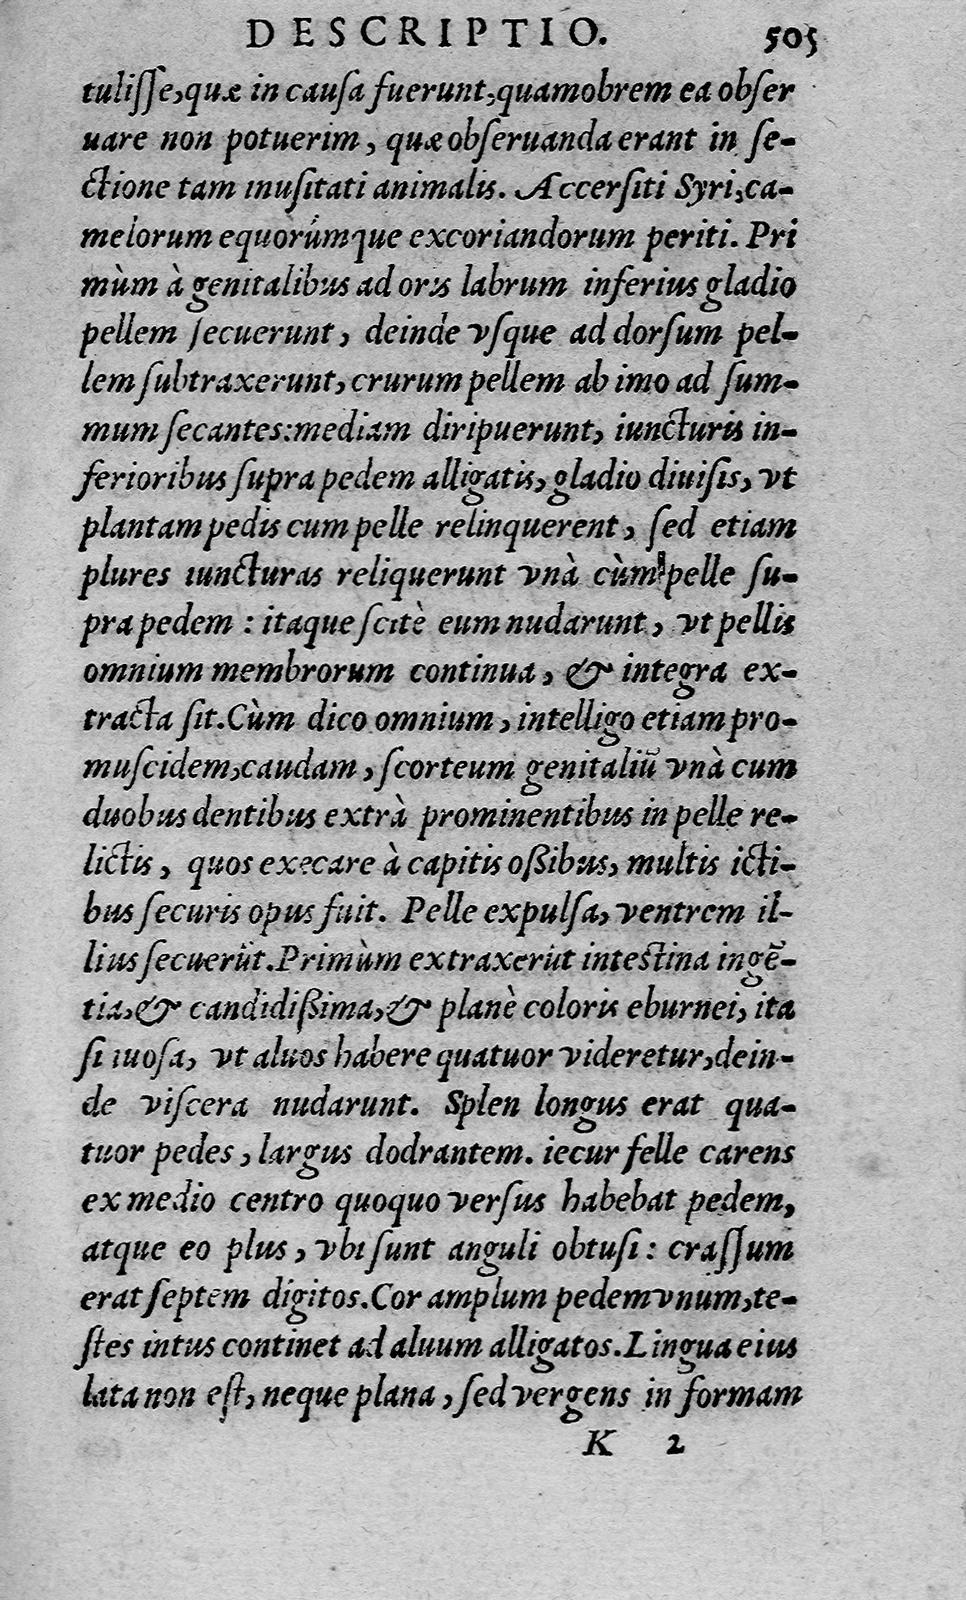 DESCRIPTIO. 505
tuliſſe, quæ in cauſa fuerunt, quamobrem ea obſer
uare non potuerim, quæ obſeruanda erant in ſe-
ctione tam inuſitati animalis. Accerſiti Syri, ca-
melorum equorúmque excoriandorum periti. Pri
mùm à genitalibus ad oris labrum inferius gladio
pellem ſecuerunt, deinde vſque ad dorſum pel-
lem ſubtraxerunt, crurum pellem ab imo ad ſum-
mum ſecantes: mediam diripuerunt, iuncturis in-
ferioribus ſupra pedem alligatis, gladio diuiſis, vt
plantam pedis cum pelle relinquerent, ſed etiam
plures iuncturas reliquerunt vnà cùm pelle ſu-
pra pedem: itaque ſcitè eum nudarunt, vt pellis
omnium membrorum continua, & integra ex-
tracta ſit. Cùm dico omnium, intelligo etiam pro-
muſcidem, caudam, ſcorteum genitaliũ vnà cum
duobus dentibus extrà prominentibus in pelle re-
lictis, quos execare à capitis oßibus, multis icti-
bus ſecuris opus fuit. Pelle expulſa, ventrem il-
lius ſecuerũt. Primùm extraxerũt inteſtina ingẽ-
tia, & candidißima, & planè coloris eburnei, ita
ſinuoſa, vt aluos habere quatuor videretur, dein-
de viſcera nudarunt. Splen longus erat qua-
tuor pedes, largus dodrantem. iecur felle carens
ex medio centro quoquo verſus habebat pedem,
atque eo plus, vbi ſunt anguli obtuſi: craſſum
erat ſeptem digitos. Cor amplum pedem vnum, te-
ſtes intus continet ad aluum alligatos. Lingua eius
lata non eſt, neque plana, ſed vergens in formam
K 2